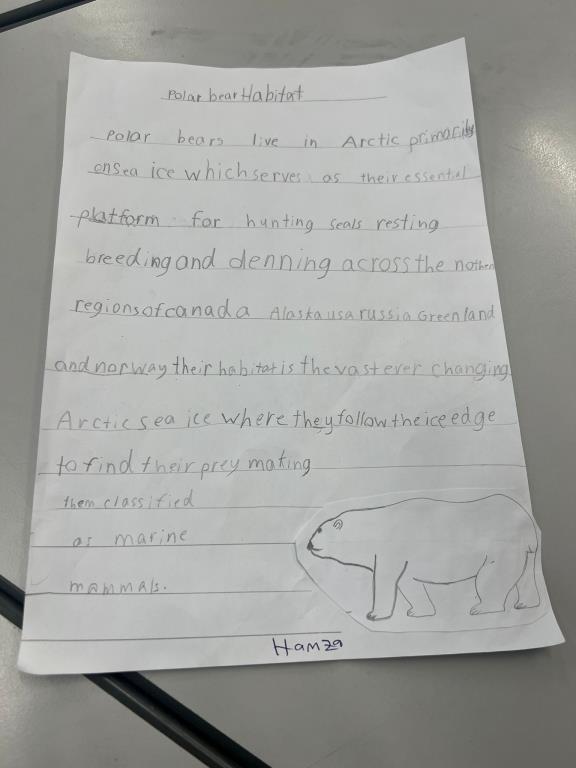 Polar bear Habitat
Polar bears live in Arctic primarily
onsea ice which serves as their essential
platform for hunting seals resting
breeding and denning across the nothen
regions of canada Alaska usa russia Greenland
and norway their habitat is the vast ever changing
Arctic sea ice where they follow the ice edge
to find their prey mating
them classified
as marine
mammals.
Hamza